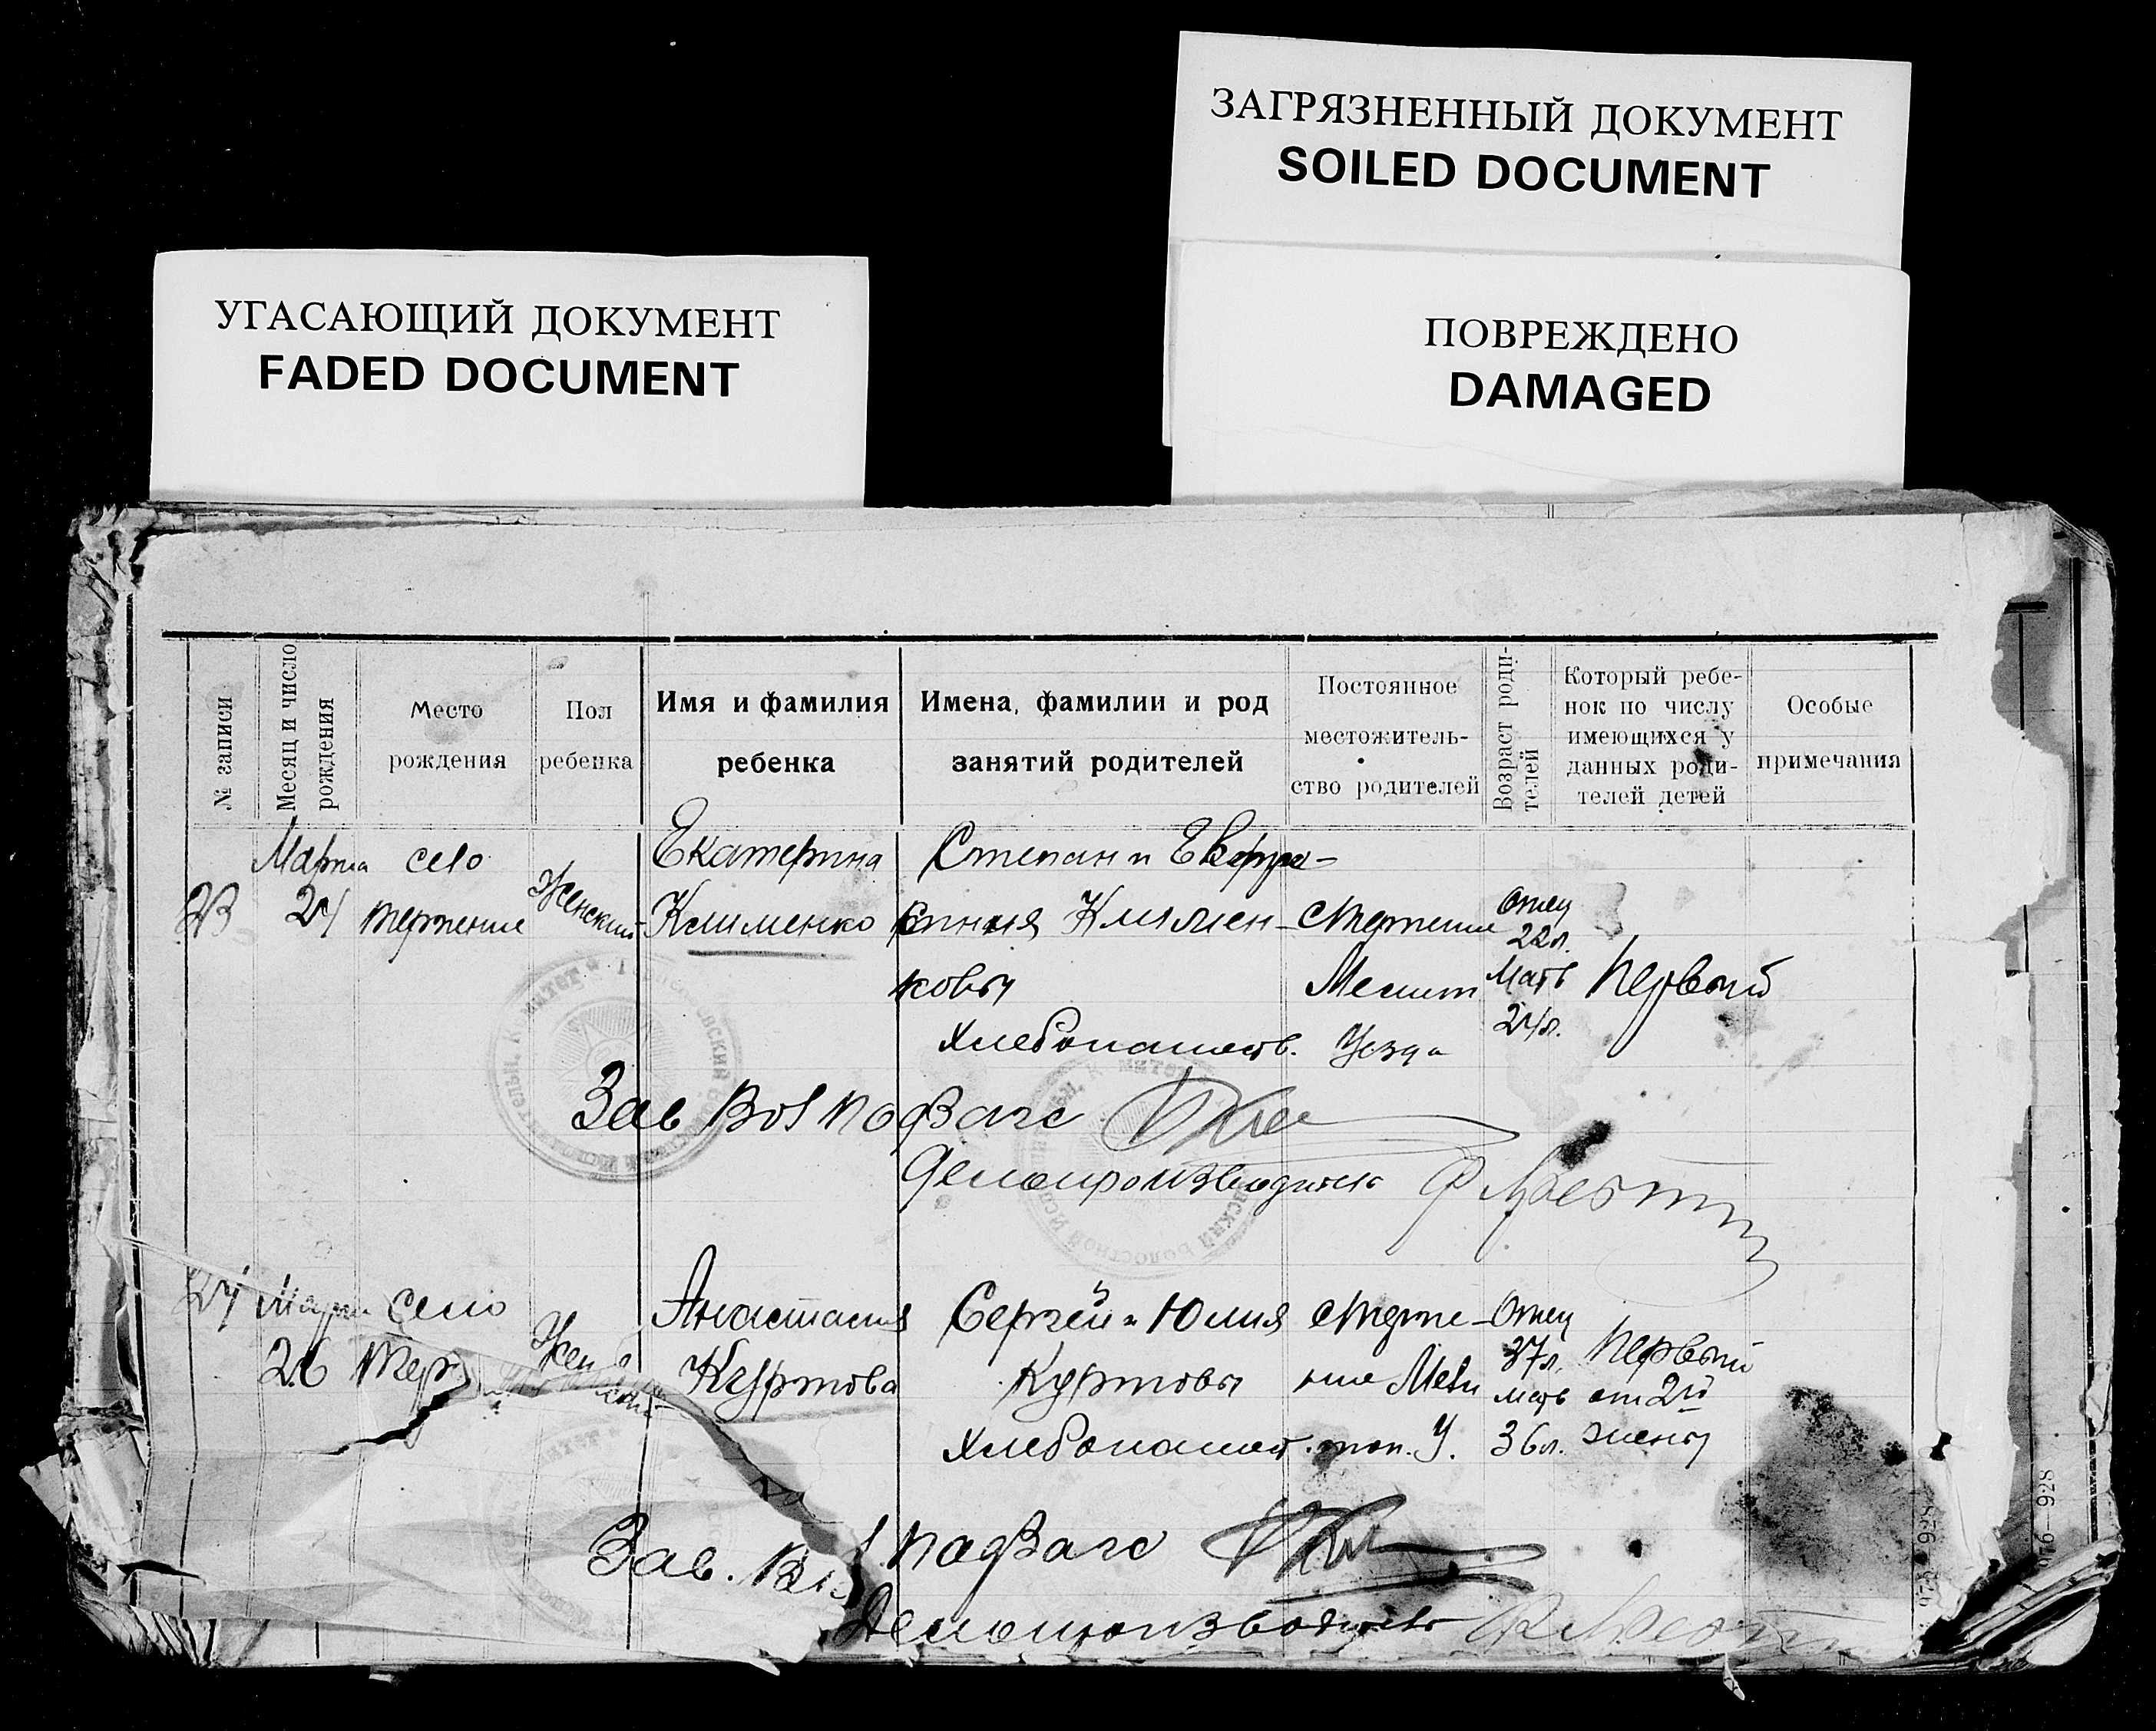 ЗАГРЯЗНЕННЫЙ ДОКУМЕНТ
SOILED DOCUMENT
УГАСАЮЩИЙ ДОКУМЕНТ
FADED DOCUMENT
ПОВРЕЖДЕНО
DAMAGED
№ записи
Месяц и число
рождения
Место
рождения
Пол
ребенка
Имя и фамилия
ребенка
Имена, фамилии и род
занятий родителей
Постоянное
местожитель-
ство родителей
Возраст роди-
телей
Который ребе-
нок по числу
имеющихся у
данных роди-
телей детей
Особые
примечания
23
Марта
24
село
Женский
Екатерина
Клименко
Степан и Евфро-
синия Климен-
ковы
Хлебопашеств.
Мелит
Уезда
Отец
22 л.
Мать
24 л.
Первый
Зав Вол подЗагс
Делопроизводитель
24
26
Село
Анастасия
Куртова
Сергей и Юлия
Куртовы
Хлебопашест.
Мели
топ. У.
Отец
37 л.
мать
36 л.
Первый
от 2й
жены
Зав.
подЗагс
Делопроизводитель
976—928